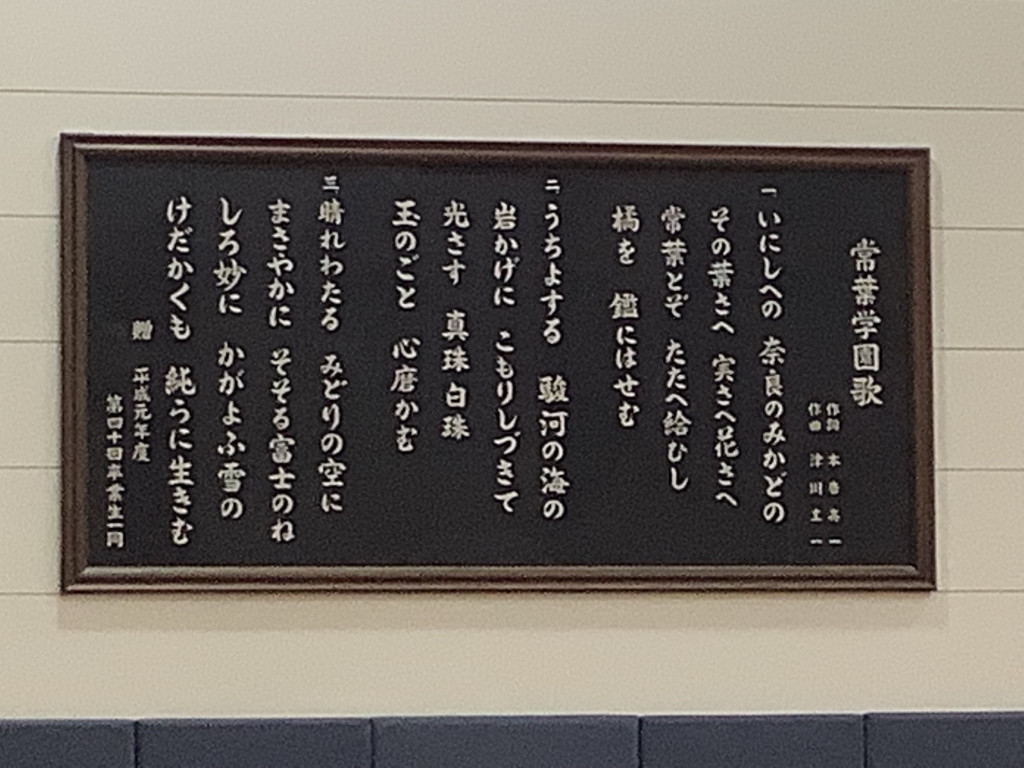 常葉学園歌
作詞 本 高一
作曲 津川主一
一 いにしへの 奈良のみかどの
その葉さへ 実さへ花さへ
常葉とぞ たたへ給ひし
橘を 鑑にはせむ
二 うちよする 駿河の海の
岩かげに こもりしづきて
光さす 真珠白珠
玉のごと 心磨かむ
三 晴れわたる みどりの空に
まさやかに そそる富士のね
しろ妙に かがよふ雪の
けだかくも 純らに生きむ
贈 平成元年度
第四十四卒業生一同